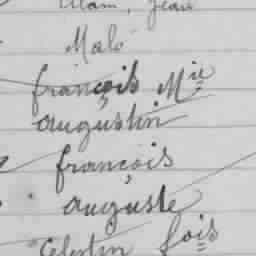 Alain, Jean
Malo
françois Mie
augustin
françois
auguste
Célestin fois